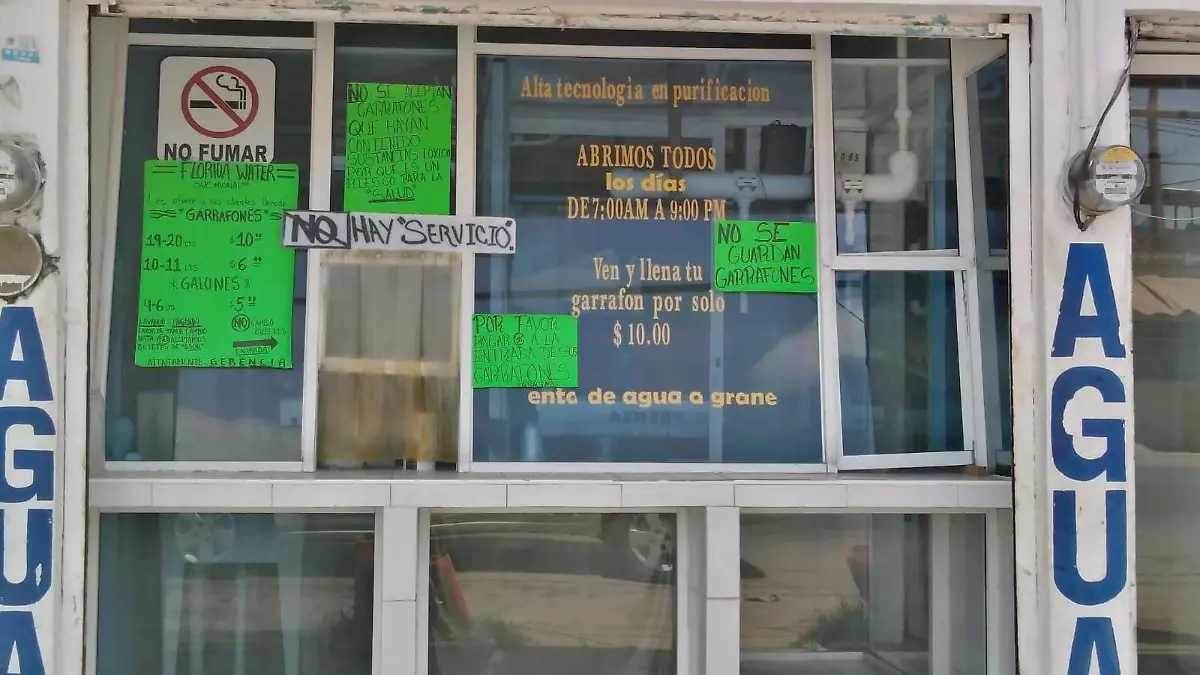 NO FUMAR
FLORIDA WATER
SUCURSAL
"GARRAFONES"
19-20 LTS $10
10-11 LTS $6
*GALONES*
4-6 LTS $5
ATENTAMENTE GERENCIA
NO SE ACEPTAN
GARRAFONES
QUE HAYAN
CONTENIDO
SUSTANCIAS TOXICA
POR QUE ES UN
RIESGO PARA LA
"SALUD"
NO HAY "SERVICIO".
Alta tecnologia en purificacion
ABRIMOS TODOS
los días
DE 7:00AM A 9:00 PM
Ven y llena tu
garrafon por solo
$ 10.00
enta de agua a grane
POR FAVOR
PAGAR A LA
ENTRADA DE SUS
GARRAFONES
NO SE
GUARDAN
GARRAFONES
AGUA
AGUA